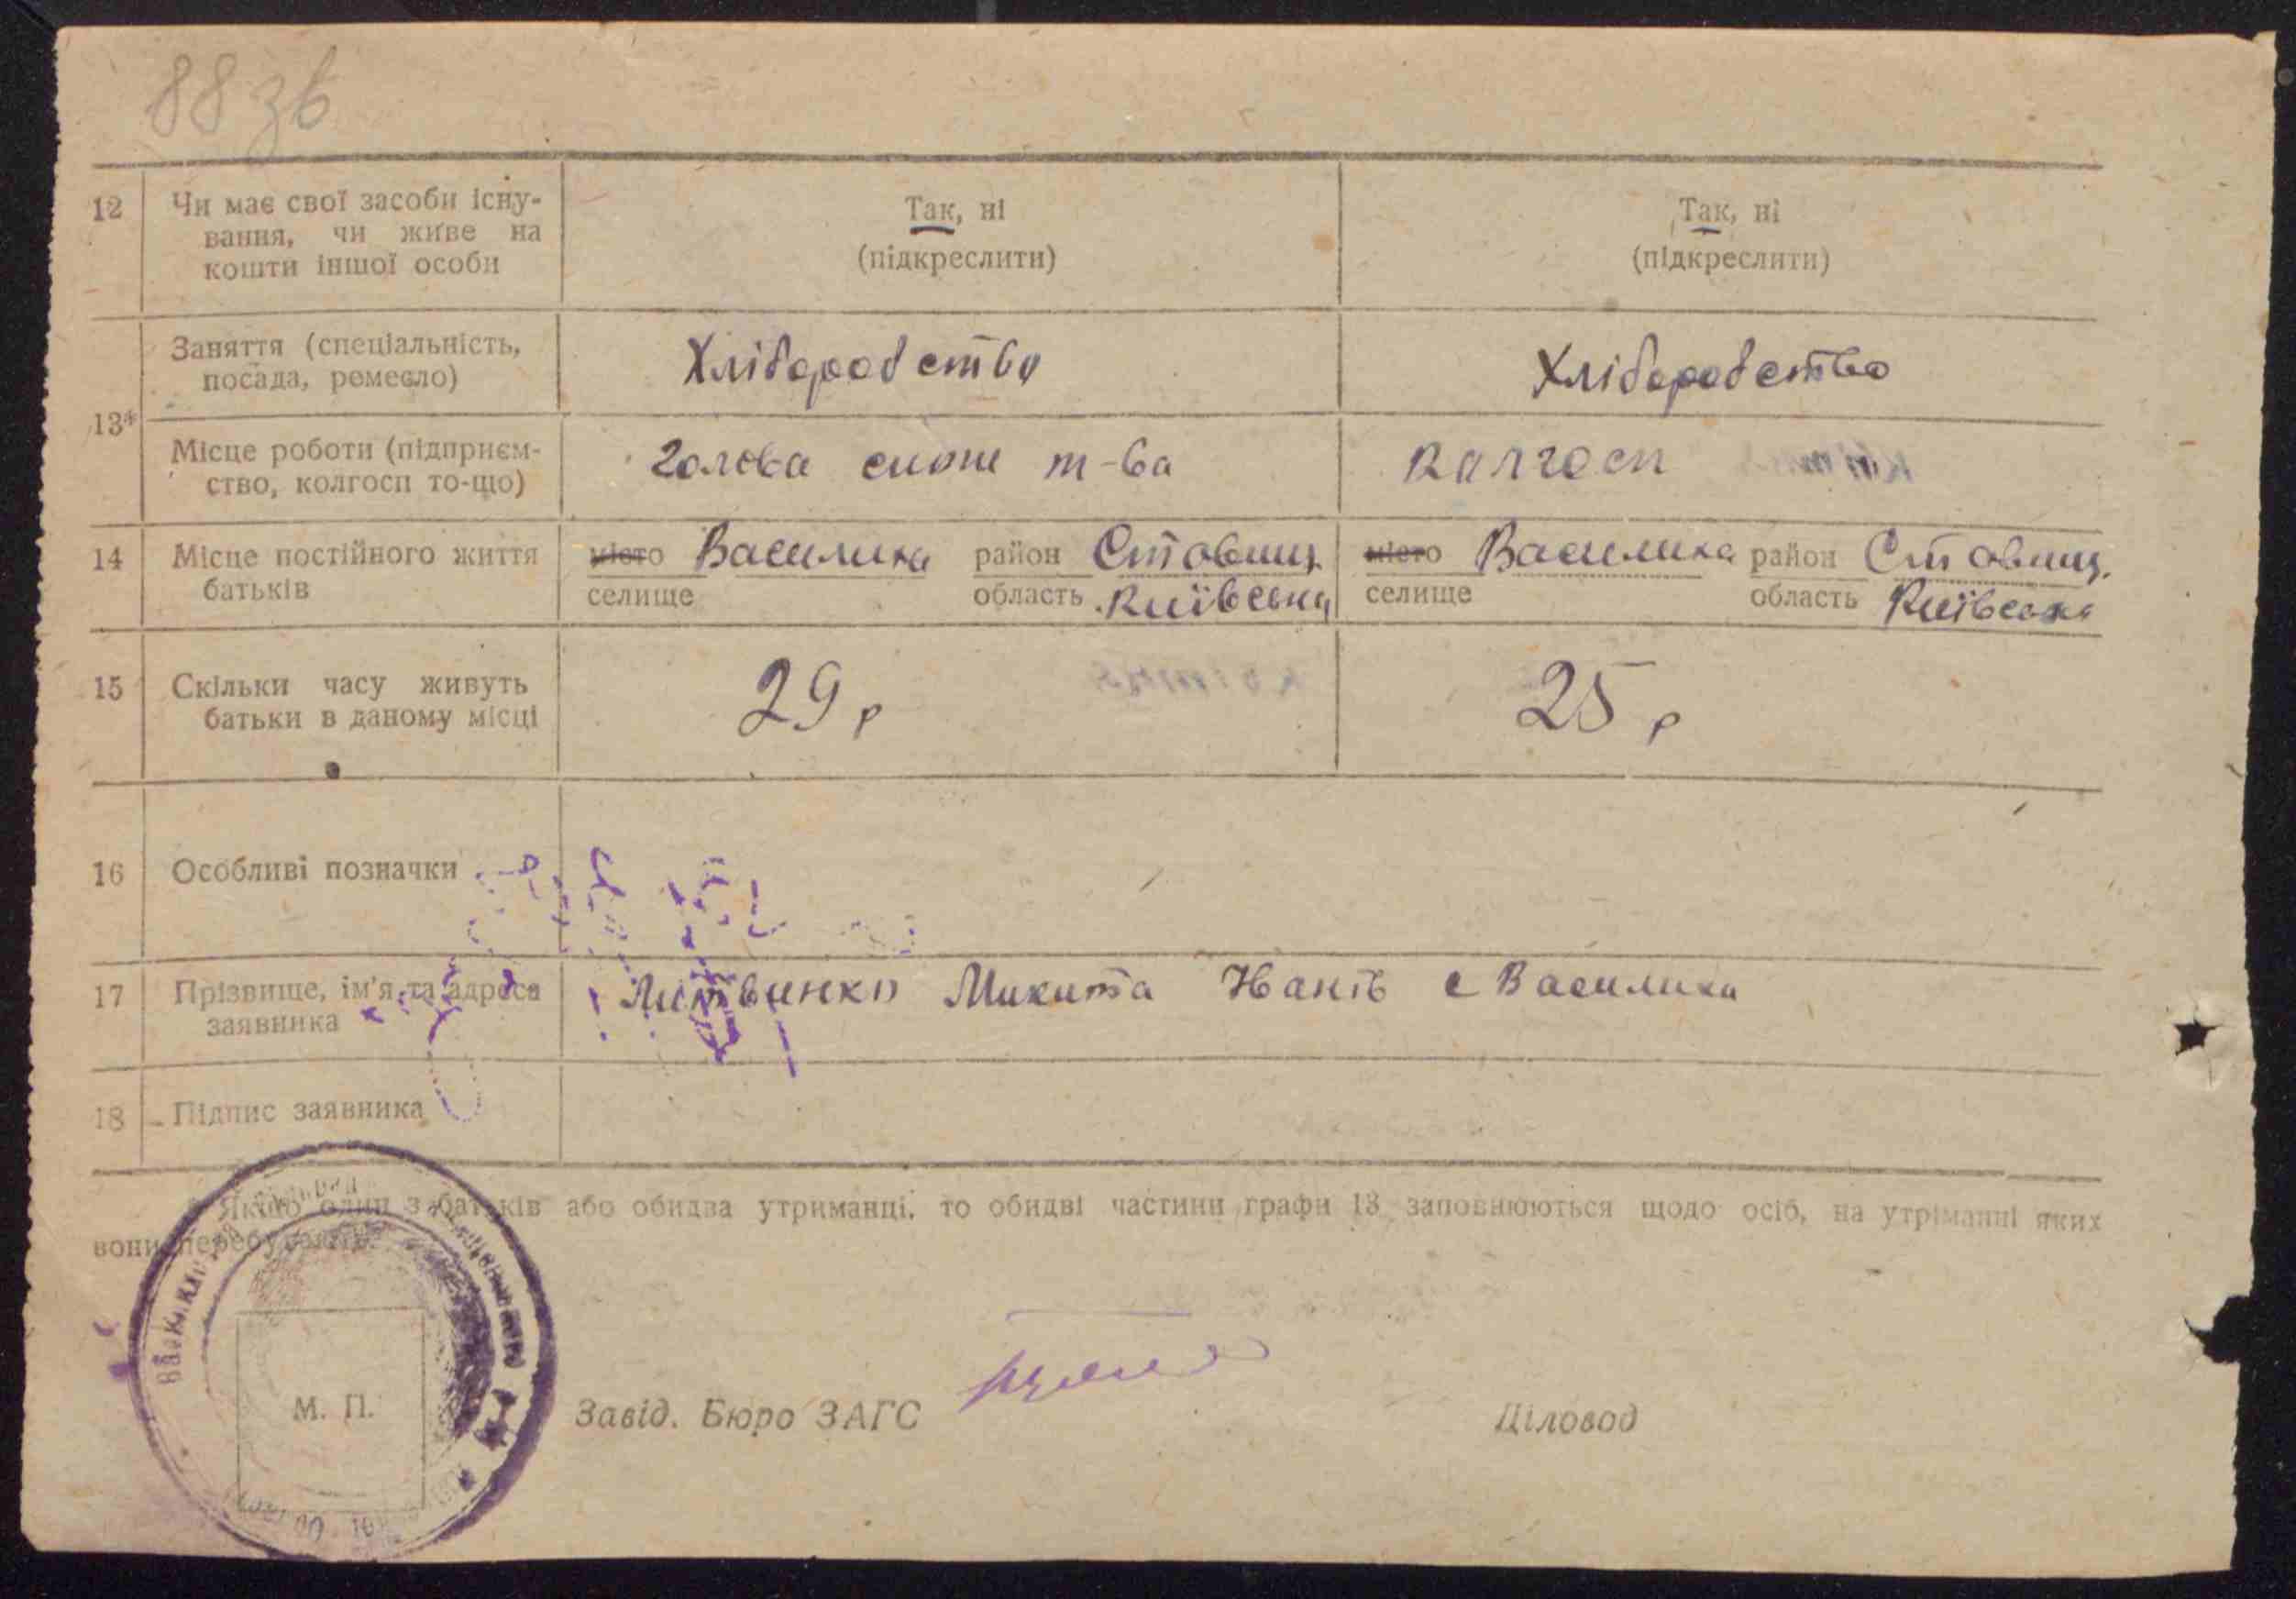 88 зв
12 Чи має свої засоби існу-
вання, чи живе на
кошти іншої особи
Так, ні
(підкреслити)
Так, ні
(підкреслити)
13*
Заняття (спеціальність,
посада, ремесло)
Хліборобство
Хліборобство
Місце роботи (підприєм-
ство, колгосп то-що)
голова т-ва
колгосп
14 Місце постійного життя
батьків
місто Василиха район Ставищ.
селище область Київська
місто Василиха район Ставищ.
селище область Київська
15 Скільки часу живуть
батьки в даному місці
29 р
25 р
16 Особливі позначки
17 Прізвище, ім'я та адреса
заявника
Литвинко Микита Іванів с Василиха
18 Підпис заявника
* Якщо один з батьків або обидва утриманці, то обидві частини графи 13 заповнюються щодо осіб, на утріманні яких
вони перебувають.
М. П.
Завід. Бюро ЗАГС
Діловод